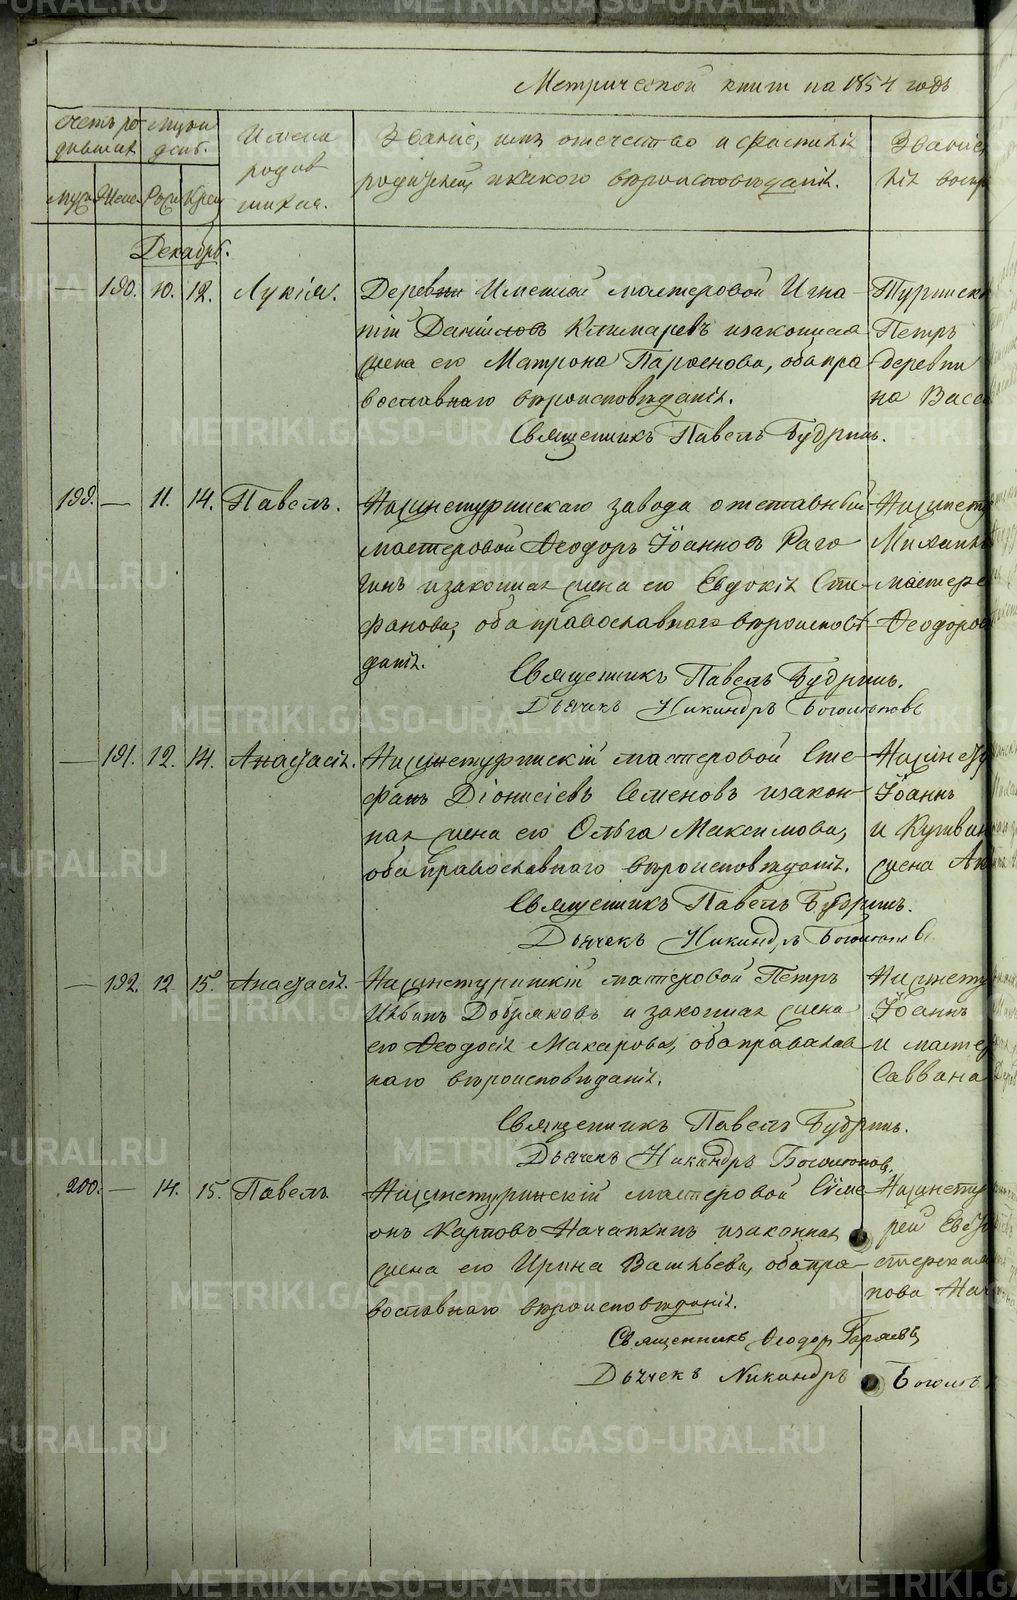 Метрической книги на 1854 годъ
Счетъ ро-
дившихся
Мѣсяцъ и
день.
Имена
родив
шихся.
Званіе, имя отечество и фамилія
родителей и какого вѣроисповѣданія.
Званіе,
Муж. Жен. Рожд. Крещ.
Декабрь.
— 190. 10. 12. Лукія.
Деревни Именной мастеровой Игна-
тій Даниловъ Климаревъ и законная
жена его Матрона Парѳенова, оба пра
вославнаго вѣроисповѣданія.
Священникъ Павелъ Будринъ.
Туринск
Петръ
деревни
на Васс
199. — 11. 14. Павелъ.
Нижнетуринскаго завода отставный
мастеровой Ѳеодоръ Іоанновъ Раго
зинъ и законная жена его Евдокія Сте-
фанова, оба православнаго вѣроисповѣ
данія.
Священникъ Павелъ Будринъ.
Дьячекъ Никандръ Боголюбовъ
Нижнету
Михаилъ
мастеро
Ѳеодоров
— 191. 12. 14. Анастасія.
Нижнетуринскій мастеровой Сте
фанъ Діонисіевъ Семеновъ и закон-
ная жена его Ольга Максимова,
оба православнаго вѣроисповѣданія.
Священникъ Павелъ Будринъ.
Дьячекъ Никандръ Боголюбовъ
Нижнету
Іоаннъ
и Кушвин
жена Ан
— 192. 12 15. Анастасія.
Нижнетуринскій мастеровой Петръ
Ивановъ Добряковъ и законная жена
его Ѳеодосія Макарова, оба православ
наго вѣроисповѣданія.
Священникъ Павелъ Будринъ.
Дьячекъ Никандръ Боголюбовъ.
Нижнету
Іоаннъ
и масте
Саввана
200. — 14. 15. Павелъ
Нижнетуринскій мастеровой Сѵме
онъ Карповъ Начапкинъ и законная
жена его Ирина Васильева, оба пра-
вославнаго вѣроисповѣданія.
Священникъ Ѳеодоръ
Дьячекъ Никандръ Боголюб
Нижнету
рей Евс
пова На
METRIKI.GASO-URAL.RU